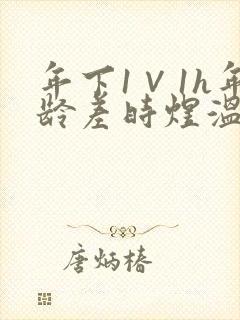 年下1V1h年
龄差时煜温
唐炳椿